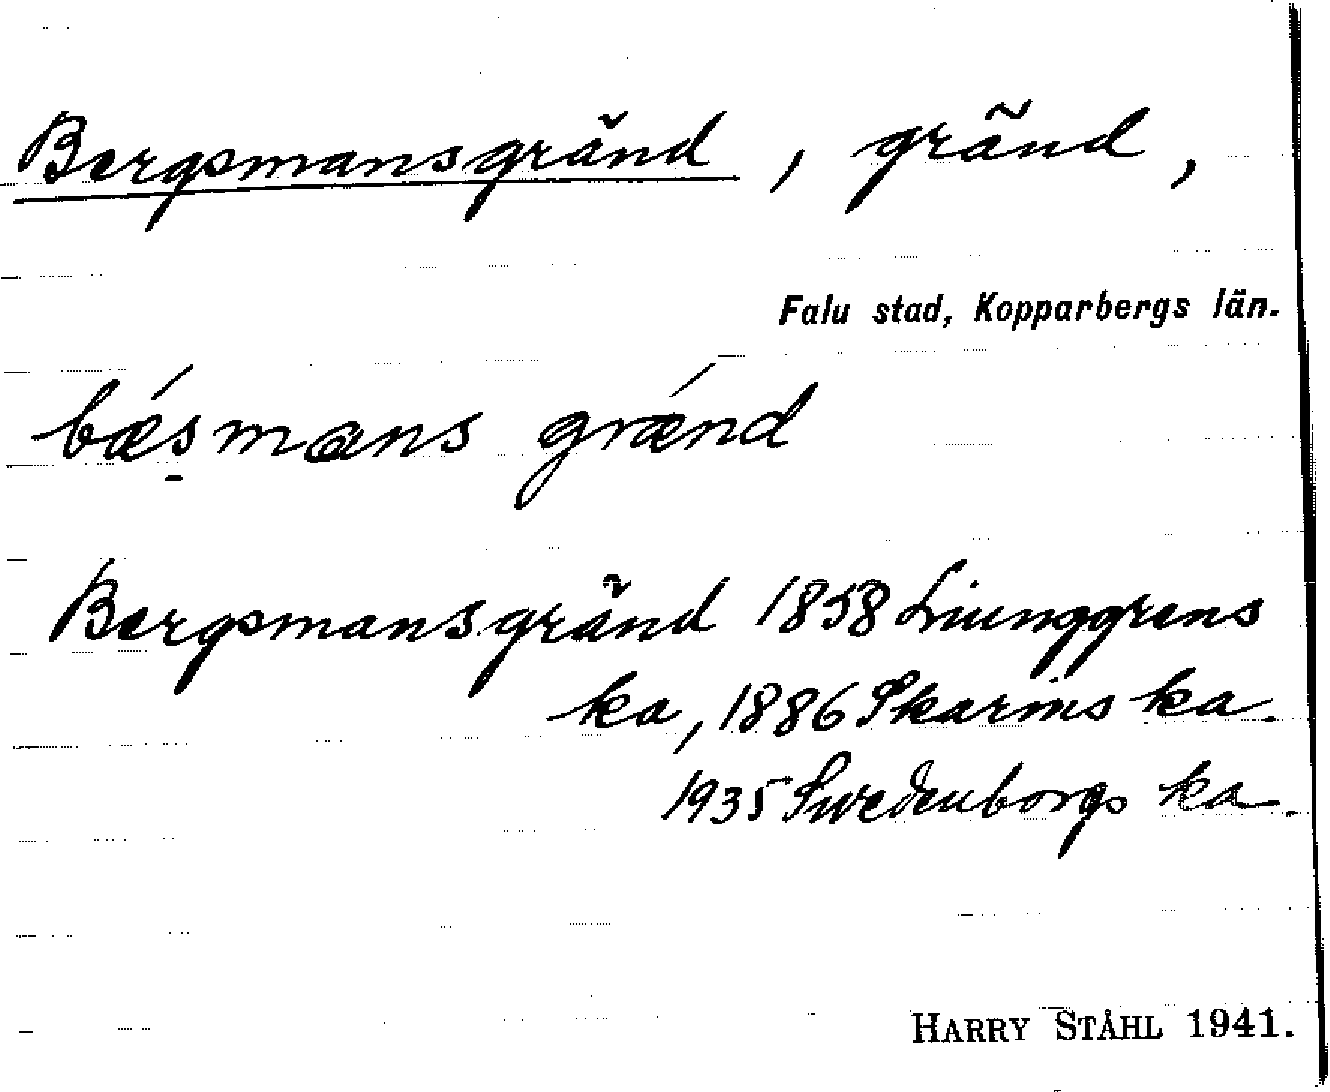 Bergsmansgränd, gränd,
Falu stad, Kopparbergs län.
bæ̀smans grǽnd
Bergsmansgränd 1858 Liunggrens
ka, 1886 Skarins ka.
1935 Swedenborgs ka.
HARRY STÅHL 1941.